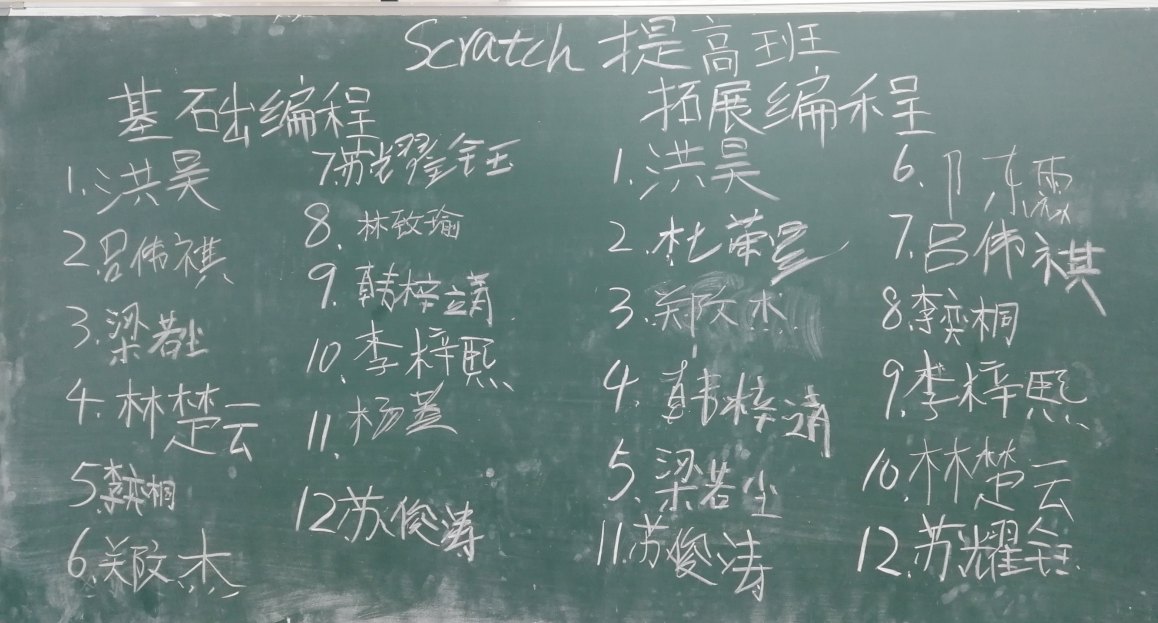 Scratch 提高班
基础编程
1.洪昊
2.吕伟祺
3.梁若尘
4.林楚云
5.李奕桐
6.郑政杰
7.苏耀钰
8.林致瑜
9.韩梓靖
10.李梓熙
11.杨
12.苏俊涛
拓展编程
1.洪昊
2.杜荣星
3.郑政杰
4.韩梓靖
5.梁若尘
11.苏俊涛
6.陈
7.吕伟祺
8.李奕桐
9.李梓熙
10.林楚云
12.苏耀钰